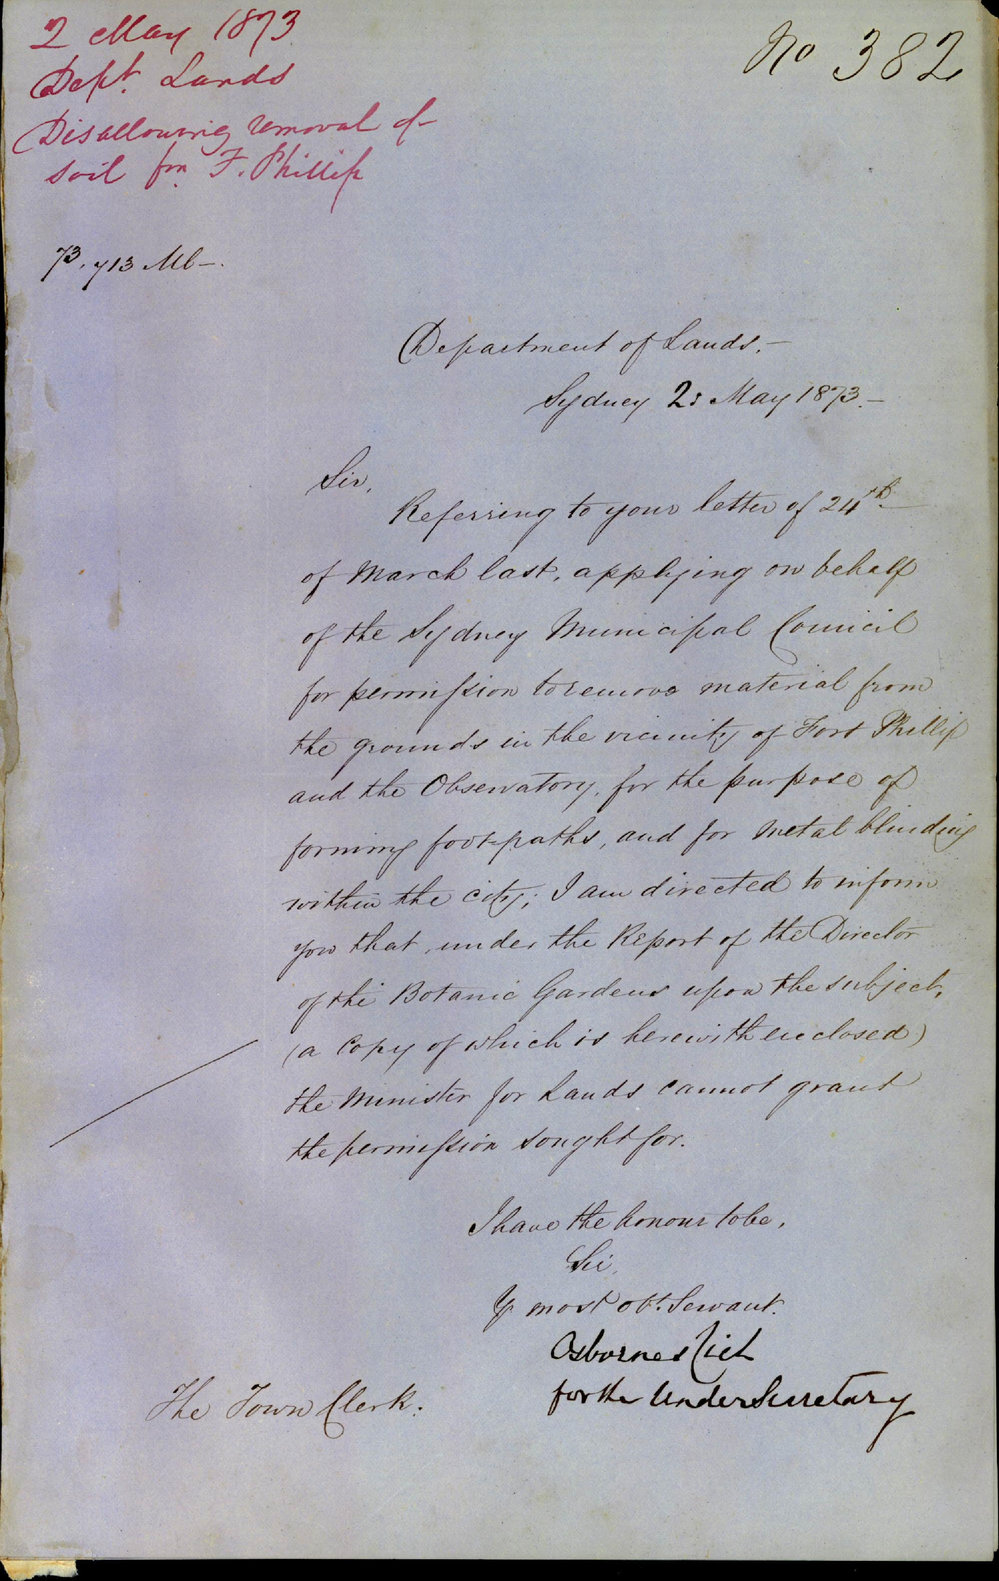 2 May 1873
Dept. Lands
Disallowing removal of
soil fm F. Phillip
No 382
73.713 Mb—.
Department of Lands.—
Sydney 2: May 1873.—
Sir,
Referring to your letter of 24th.
of March last, applying on behalf
of the Sydney Municipal Council
for permission to remove material from
the grounds in the vicinity of Fort Phillip
and the Observatory, for the purpose of
forming footpaths, and for metal blinding
within the city; I am directed to inform
you that, under the Report of the Director
of the Botanic Gardens upon the subject,
(a copy of which is herewith enclosed)
the Minister for Lands cannot grant
the permission sought for.
I have the honour to be,
Sir,
Yr most obt. Servant.
Osborne Rich
for the Under Secretary
The Town Clerk.